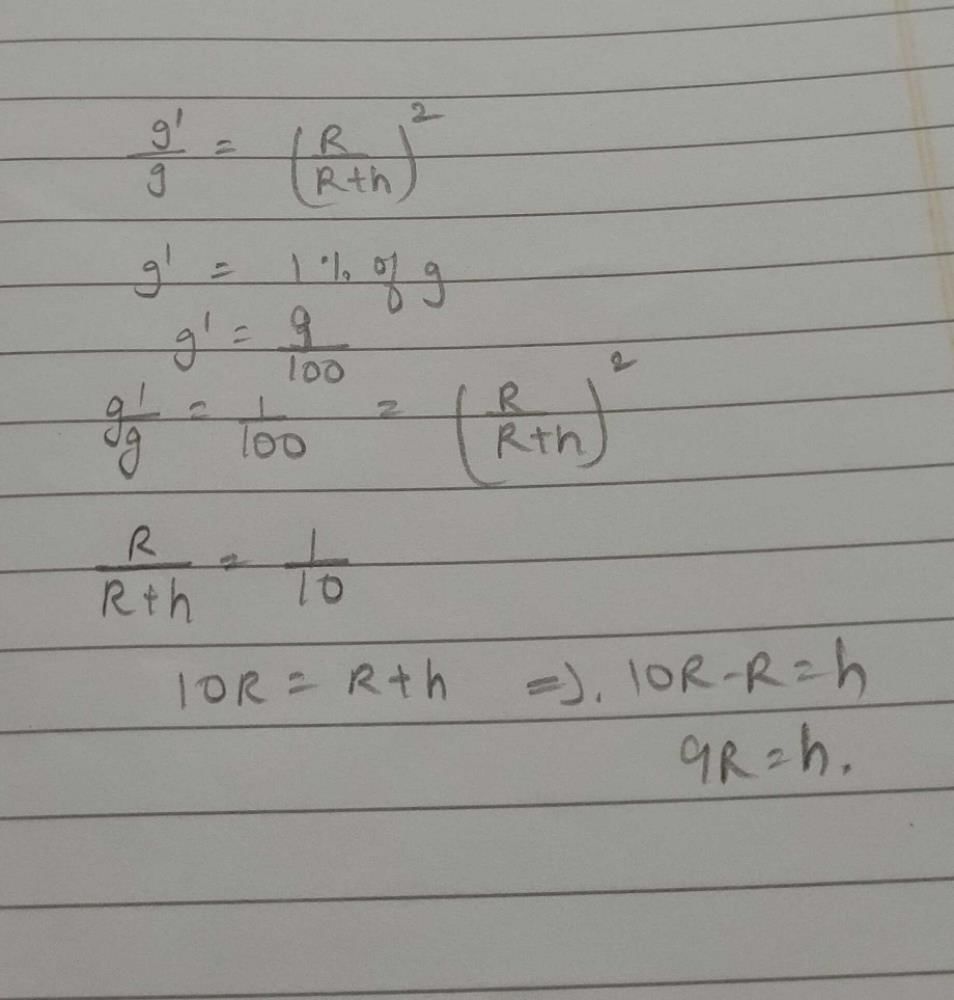 g'/g = (R/R+h)²
g' = 1% of g
g' = g/100
g'/g = 1/100 = (R/R+h)²
R/R+h = 1/10
10R = R+h ⇒. 10R-R=h
9R=h.